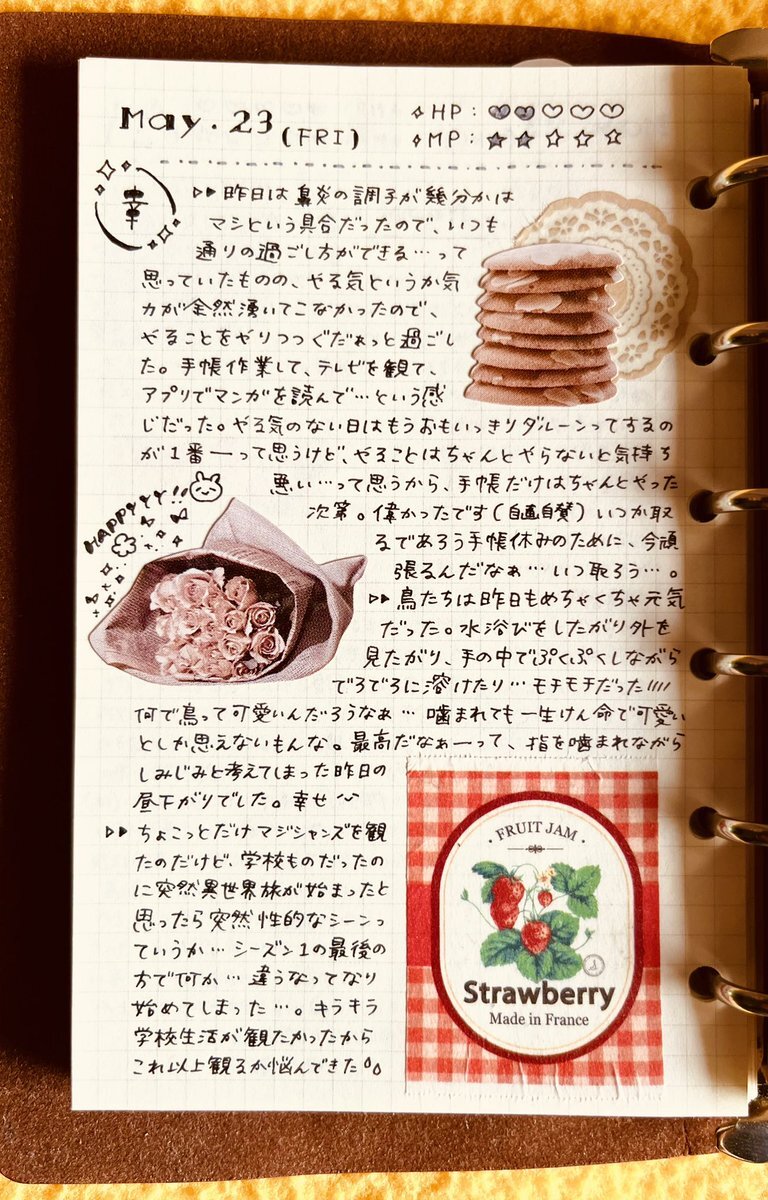 May. 23 (FRI)
✧HP: ♥♥♡♡♡
✧MP: ★★☆☆☆
幸
▷▷昨日は鼻炎の調子が幾分かは
マシという具合だったので、いつも
通りの過ごし方ができる…って
思っていたものの、やる気というか気
力が全然湧いてこなかったので、
やることをやりつつぐだぁっと過ごし
た。手帳作業して、テレビを観て、
アプリでマンガを読んで…という感
じだった。やる気のない日はもうおもいっきりダルーンってするの
が1番ーって思うけど、やることはちゃんとやらないと気持ち
悪い…って思うから、手帳だけはちゃんとやった
次第。偉かったです(自画自賛)いつか取
るであろう手帳休みのために、今頑
張るんだなぁ…いつ取ろう…。
Happyyy!!
▷▷鳥たちは昨日もめちゃくちゃ元気
だった。水浴びをしたがり外を
見たがり、手の中でぷくぷくしながら
でろでろに溶けたり…モチモチだった////
何で鳥って可愛いんだろうなぁ…噛まれても一生けん命で可愛い
としか思えないもんな。最高だなぁーって、指を噛まれながら
しみじみと考えてしまった昨日の
昼下がりでした。幸せ
▷▷ちょこっとだけマジシャンズを観
たのだけど、学校ものだったの
に突然異世界旅が始まったと
思ったら突然性的なシーンっ
ていうか…シーズン1の最後の
方で何か…違うなってなり
始めてしまった…。キラキラ
学校生活が観たかったから
これ以上観るか悩んできた
・FRUIT JAM・
Strawberry
Made in France